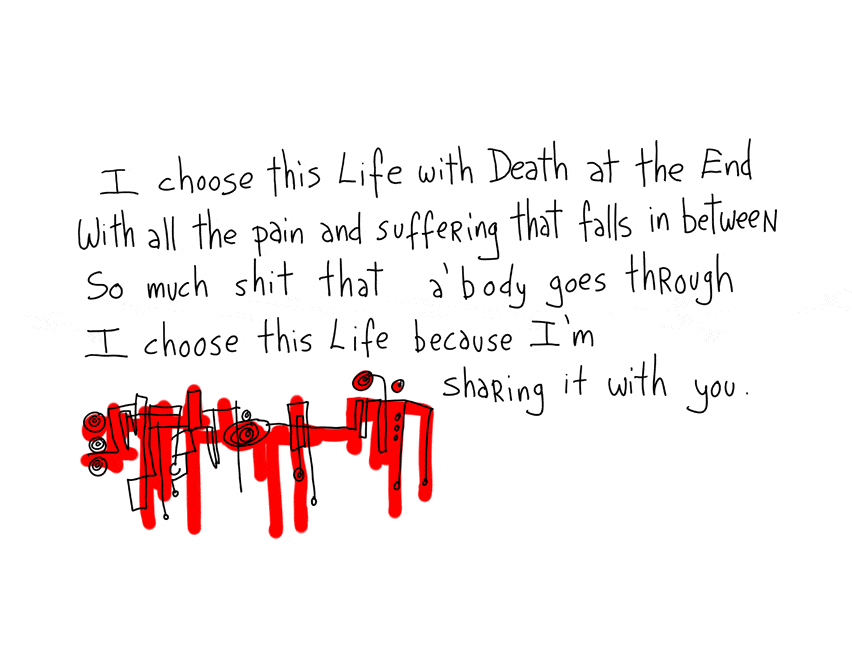 I choose this Life with Death at the End
With all the pain and suffeRing that falls in betweeN
So much shit that a'body goes thRough
I choose this Life because I'm
shaRing it with you.